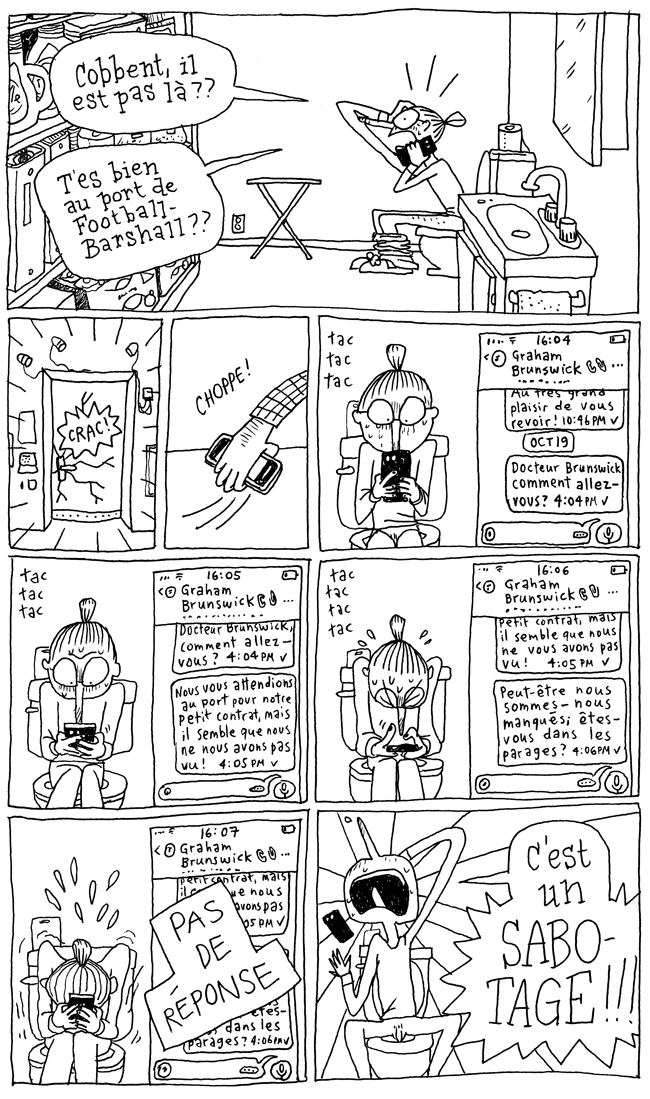 Cobbent, il
est pas là??
T'es bien
au port de
Football-
Barshall??
CRAC!
CHOPPE!
tac
tac
tac
16:04
Graham
Brunswick ...
Au très grand
plaisir de vous
revoir! 10:46PM ✓
OCT 19
Docteur Brunswick
comment allez-
vous? 4:04PM ✓
tac
tac
tac
16:05
Graham
Brunswick ...
Docteur Brunswick,
comment allez-
vous? 4:04PM ✓
Nous vous attendions
au port pour notre
petit contrat, mais
il semble que nous
ne nous avons pas
vu! 4:05 PM ✓
tac
tac
tac
tac
16:06
Graham
Brunswick ...
petit contrat, mais
il semble que nous
ne vous avons pas
vu! 4:05PM ✓
Peut-être nous
sommes-nous
manqués; êtes-
vous dans les
parages? 4:06PM ✓
16:07
Graham
Brunswick ...
petit contrat, mais
que nous
avons pas
05 PM ✓
PAS
DE
RÉPONSE
êtes-
dans les
parages? 4:06PM ✓
c'est
un
SABO-
TAGE!!!